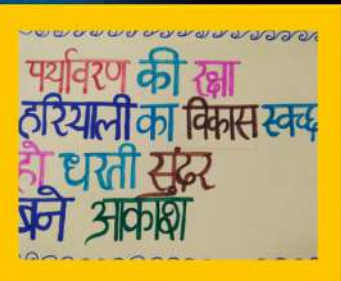 पर्यावरण की रक्षा
हरियाली का विकास स्वच्छ
हो धरती सुंदर
बने आकाश